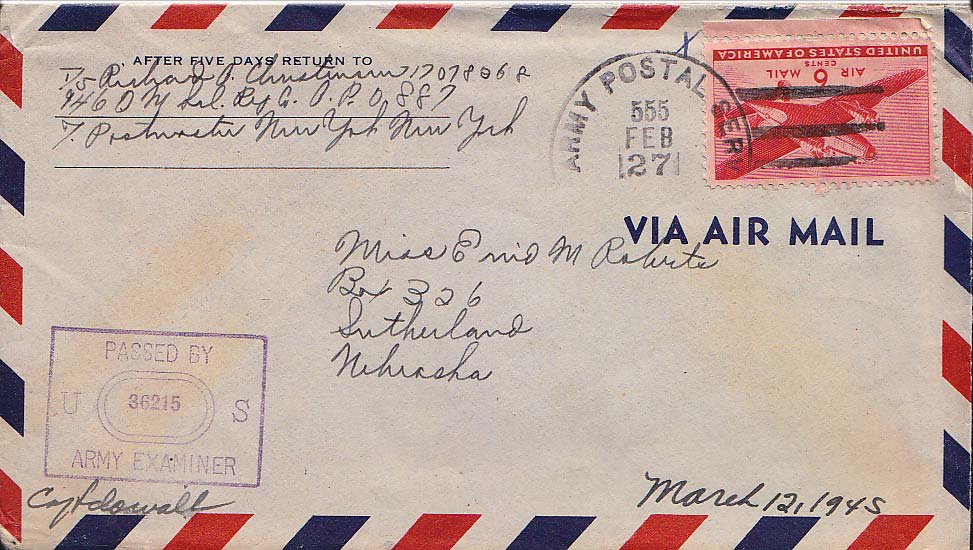 AFTER FIVE DAYS RETURN TO
T/5 Richard O. Christensen 17078068
446 Q M Ry Co. A. P. O. 887
% Postmaster New York New York
ARMY POSTAL SERV
555
FEB
27
UNITED STATES OF AMERICA
6 CENTS
AIR MAIL
VIA AIR MAIL
Miss Enid M Roberts
Box 326
Sutherland
Nebraska
PASSED BY
U 36215 S
ARMY EXAMINER
March 12, 1945